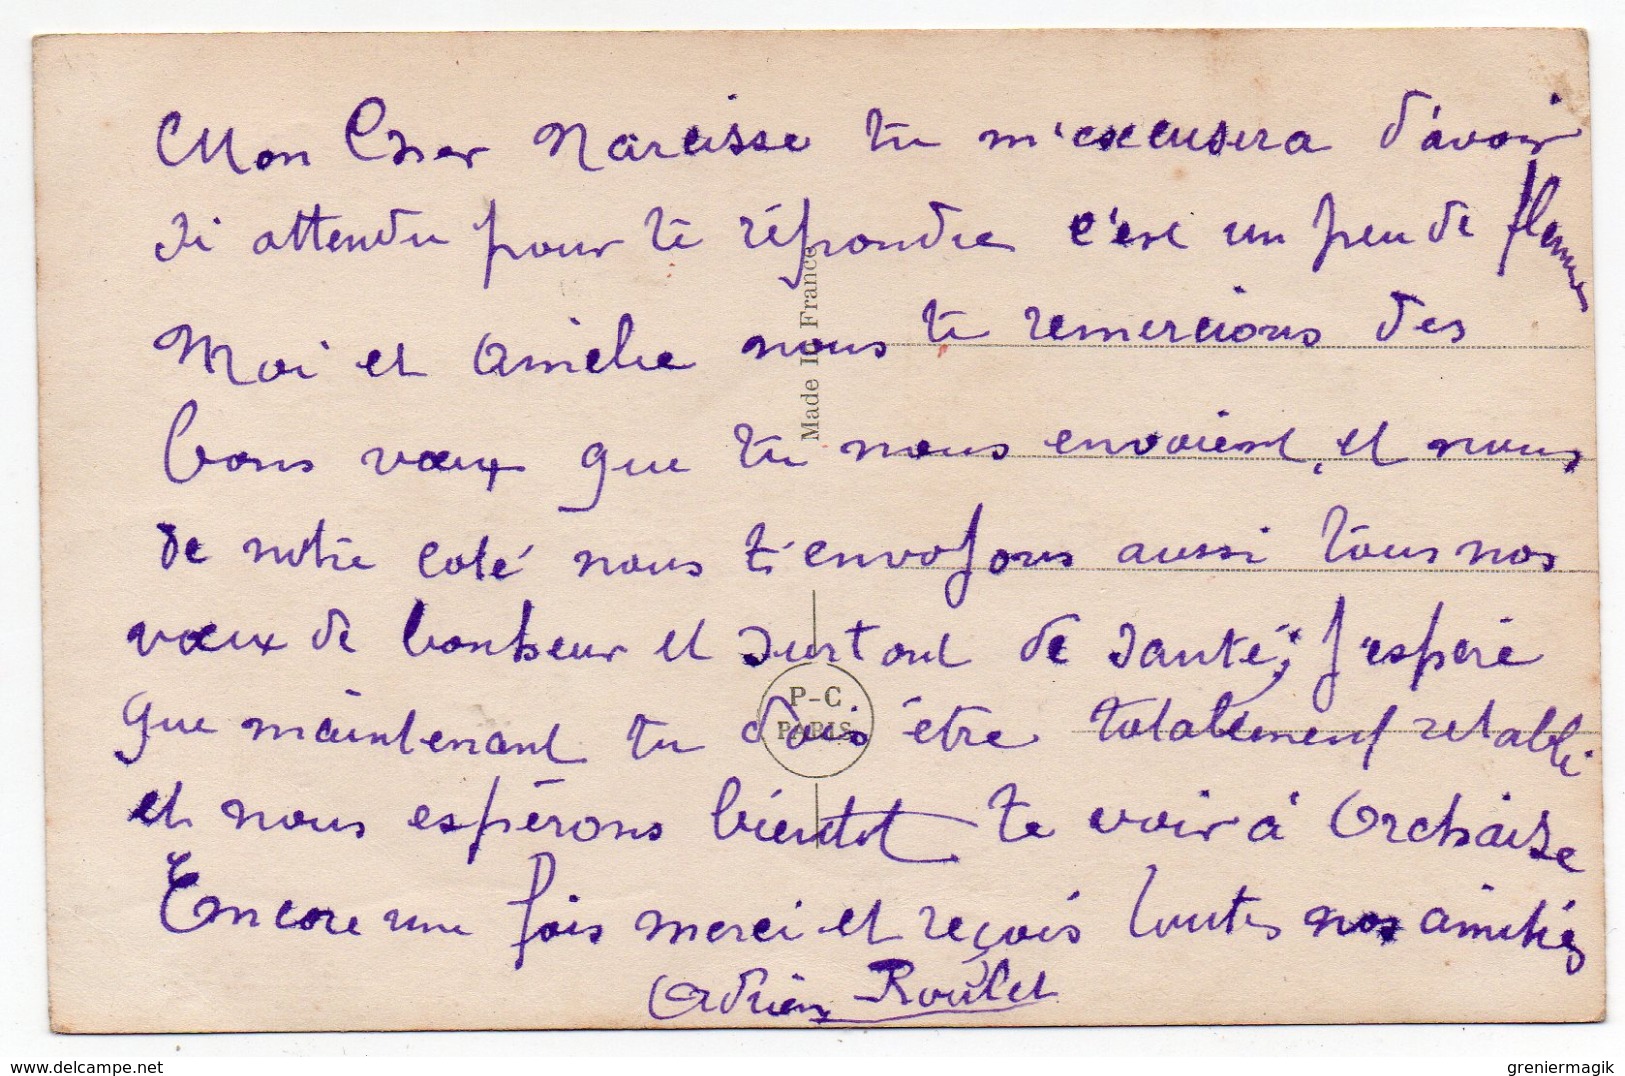 Mon Cher Narcisse tu m'excusera d'avoir
si attendu pour te répondre c'est un peu de flemme
Moi et Amélie nous te remercions des
bons vœux que tu nous envoient, et nous
de notre coté nous t'envoyons aussi tous nos
vœux de bonheur et surtout de santé, j'espére
que maintenant tu dois être totalement retabli
et nous espérons bientot te voir à Orchaise
Encore une fois merci et reçois toutes nos amitiés
Adrien Roulet
Made In France
P-C
PARIS
delcampe.net
greniermagik